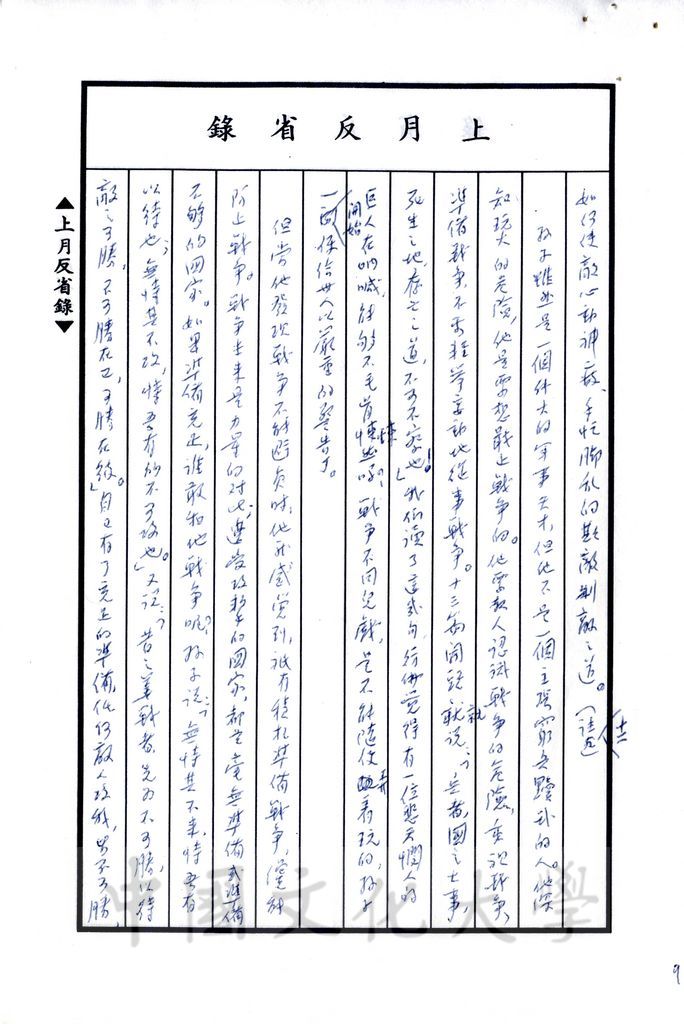 上月反省錄
如何使敵心動神疲、手忙腳亂的欺敵制敵之道。(註十二)
孫子雖然是一個偉大的軍事天才,但他不是一個主張窮兵黷武的人。他深
知玩火的危險,他是要想戢止戰爭的。他要敎人認識戰爭的危險,重視戰爭、
準備戰爭,不要輕舉妄動地從事戰爭。十三篇開頭就說:「兵者,國之大事,
死生之地,存亡之道,不可不察也!」我們讀了這幾句,彷彿覺得有一位悲天憫人的
巨人在開始吶喊,能夠不毛骨悚然嗎?戰爭不同兒戲,是不能隨便弄着玩的,孫子
一開始給世人以嚴重的警告了。
但當他發現戰爭不能避免時,他更感覺到,祇有積極準備戰爭,纔能
防止戰爭。戰爭本來是力量的對比,遭受攻擊的國家,都是毫無準備或準備
不夠的國家。如果準備充足,誰敢和他戰爭呢?孫子說:「無恃其不來,恃吾有
以待也;無恃其不攻,恃吾有所不可攻也。」又說:「昔之善戰者,先為不可勝,以待
敵之可勝,不可勝在己,可勝在敵。」自己有了充足的準備,任何敵人攻我,皆不可勝,
▲上月反省錄▼
中國文化大學
9